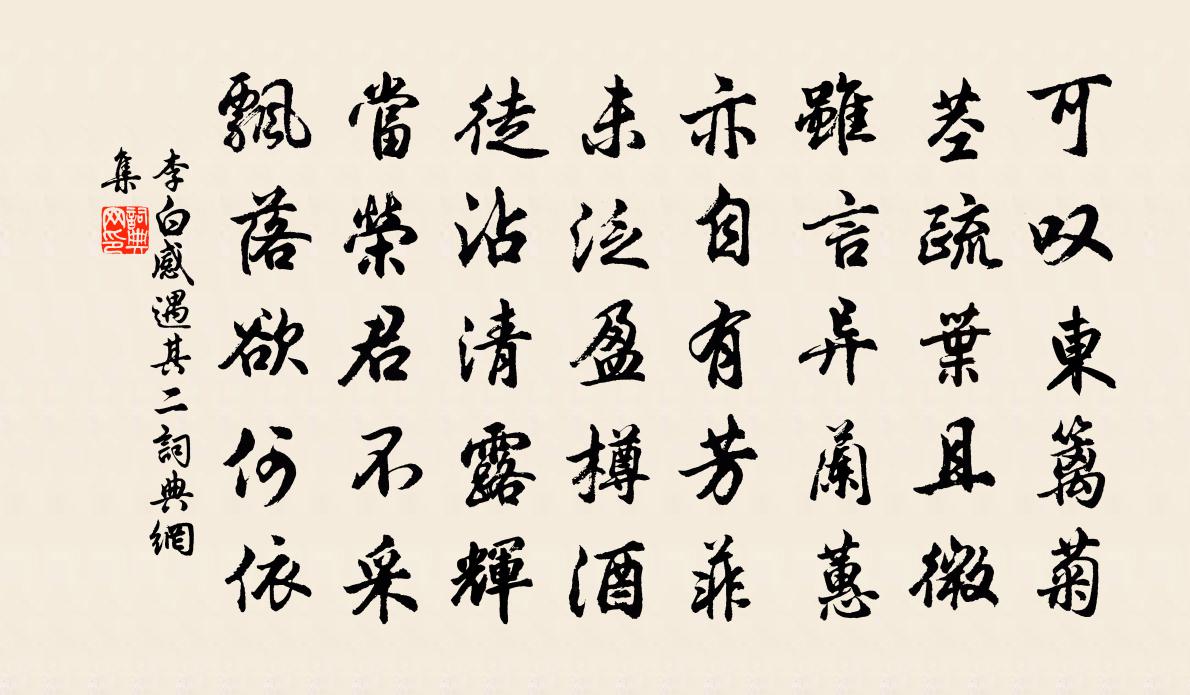 可叹東篱菊
茎疏葉且微
雖言异蘭蕙
亦自有芳菲
未泛盈樽酒
徒沾清露輝
當榮君不采
飄落欲何依
李白感遇其二詞典網
集
詞典网印